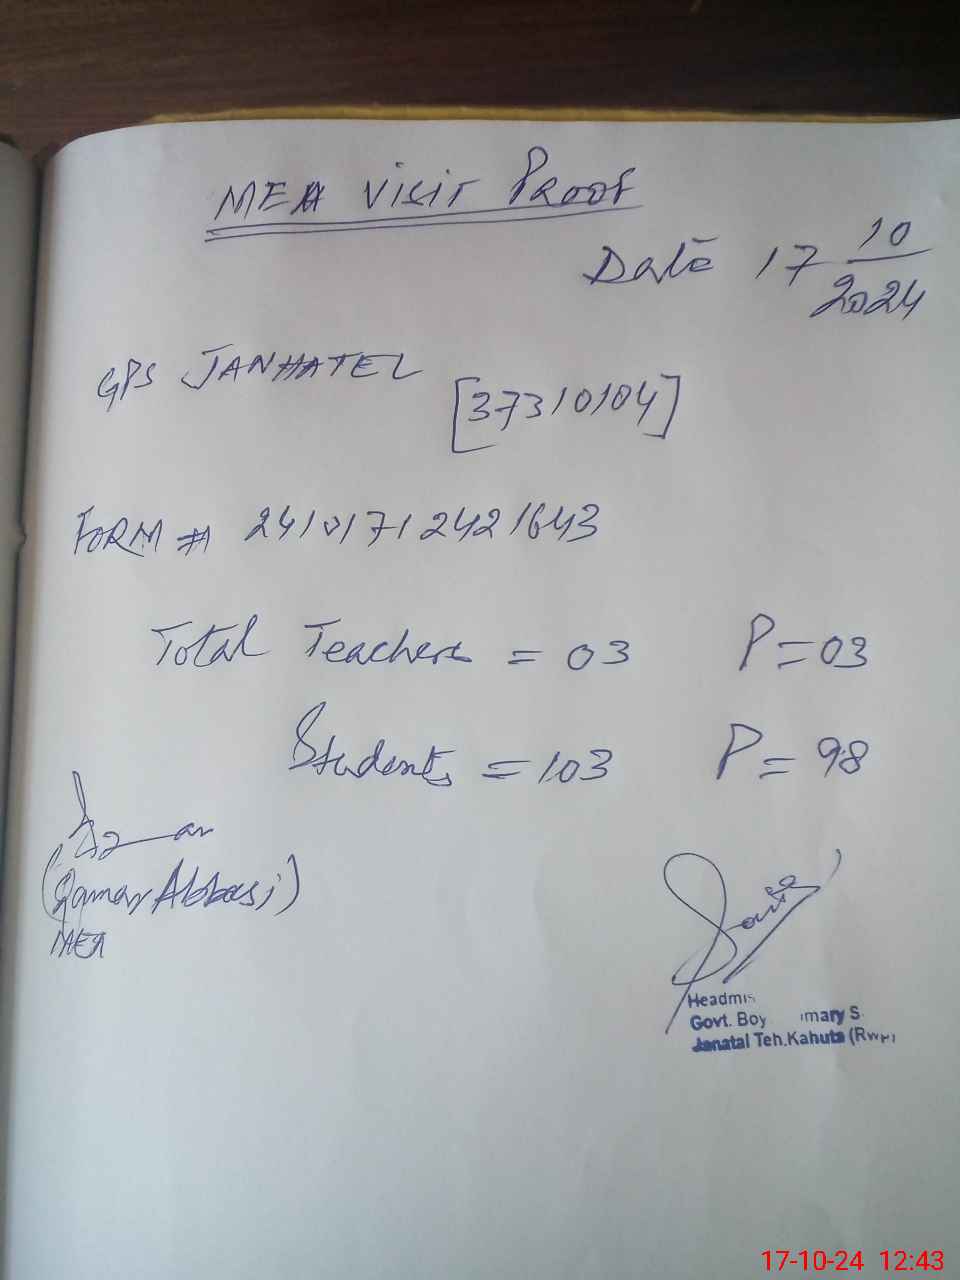 MEA Visit Proof
Date 17 10/2024
GPS JANHATEL
[37310104]
FORM # 24101712421643
Total Teachers = 03 P = 03
Students = 103 P = 98
(Qamar Abbasi)
MEA
Headmis
Govt. Boy imary S
Janatal Teh.Kahuta (Rwp)
17-10-24 12:43